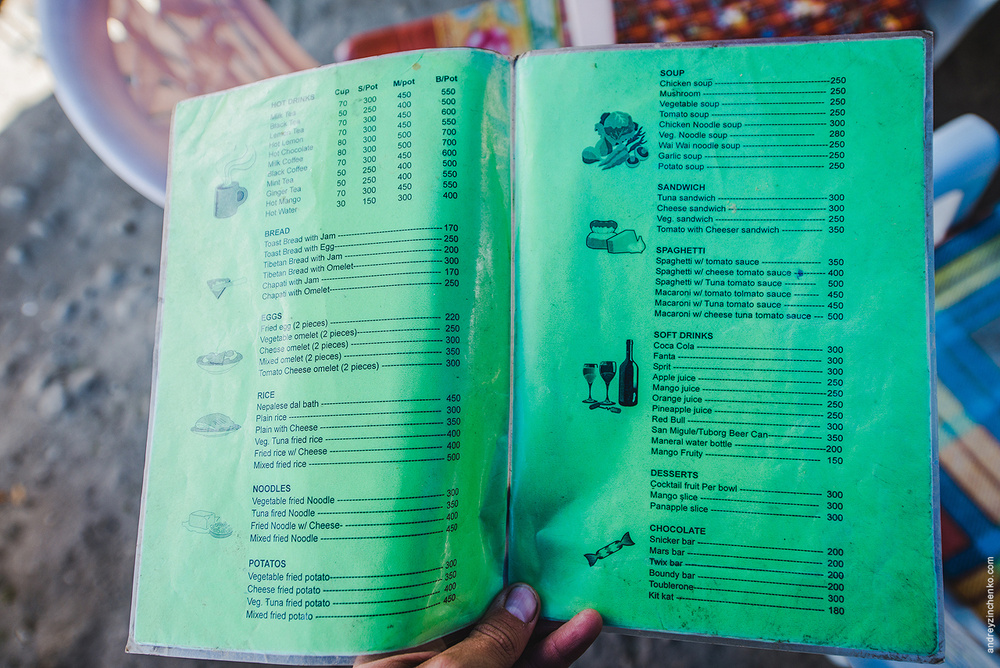 HOT DRINKS Cup S/Pot M/pot B/Pot
Milk Tea 70 300 450 550
Black Tea 50 250 400 500
Lemon Tea 70 300 450 600
Hot Lemon 70 300 400 550
Hot Chocolate 80 300 500 700
Milk Coffee 80 300 500 700
Black Coffee 70 300 400 600
Mint Tea 50 250 400 500
Ginger Tea 50 250 400 500
Hot Mango 70 300 450 550
Hot Water 30 150 300 400
BREAD
Toast Bread with Jam 170
Toast Bread with Egg 250
Tibetan Bread with Jam 200
Tibetan Bread with Omelet 300
Chapati with Jam 170
Chapati with Omelet 250
EGGS
Fried egg (2 pieces) 220
Vegetable omelet (2 pieces) 250
Cheese omelet (2 pieces) 300
Mixed omelet (2 pieces) 350
Tomato Cheese omelet (2 pieces) 300
RICE
Nepalese dal bath 450
Plain rice 300
Plain with Cheese 350
Veg. Tuna fried rice 400
Fried rice w/ Cheese 400
Mixed fried rice 500
NOODLES
Vegetable fried Noodle 300
Tuna fired Noodle 350
Fried Noodle w/ Cheese 400
Mixed fried Noodle 450
POTATOS
Vegetable fried potato 300
Cheese fried potato 350
Veg. Tuna fried potato 400
Mixed fried potato 450
SOUP
Chicken soup 250
Mushroom 250
Vegetable soup 250
Tomato soup 250
Chicken Noodle soup 300
Veg. Noodle soup 280
Wai Wai noodle soup 250
Garlic soup 250
Potato soup 250
SANDWICH
Tuna sandwich 300
Cheese sandwich 300
Veg. sandwich 250
Tomato with Cheeser sandwich 350
SPAGHETTI
Spaghetti w/ tomato sauce 350
Spaghetti w/ cheese tomato sauce 400
Spaghetti w/ Tuna tomato sauce 500
Macaroni w/ tomato tolmato sauce 450
Macaroni w/ Tuna tomato sauce 450
Macaroni w/ cheese tuna tomato sauce 500
SOFT DRINKS
Coca Cola 300
Fanta 300
Sprit 300
Apple juice 250
Mango juice 250
Orange juice 250
Pineapple juice 250
Red Bull 300
San Migule/Tuborg Beer Can 350
Maneral water bottle 200
Mango Fruity 150
DESSERTS
Cocktail fruit Per bowl 300
Mango slice 300
Panapple slice 300
CHOCOLATE
Snicker bar 200
Mars bar 200
Twix bar 200
Boundy bar 200
Toublerone 300
Kit kat 180
andreyzinchenko.com